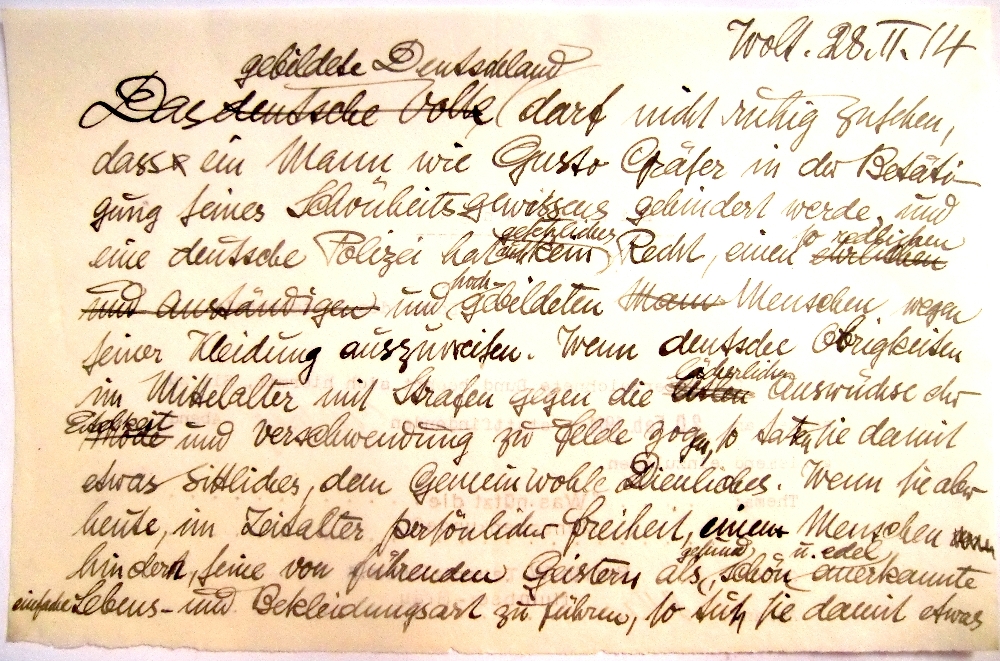 Wolt. 28.II.14
gebildete Deutschland
Das deutsche Volk darf nicht ruhig zusehen,
dass ein Mann wie Gusto Gräser in der Betäti-
gung seines Schönheitsgewissens gehindert werde, und
gesetzliches so redlichen
eine deutsche Polizei hat kein Recht, einen ehrlichen
hoch-
und anständigen und gebildeten Mann Menschen wegen
seiner Kleidung auszuweisen. Wenn deutsche Obrigkeiten
äußerlichen
im Mittelalter mit Strafen gegen die Auswüchse der
Eitelkeit
Mode und Verschwendung zu Felde zogen, so taten sie damit
etwas Sittliches, dem Gemeinwohle Dienliches. Wenn sie aber
heute, im Zeitalter persönlicher Freiheit, einem Menschen
gesund u. edel
hindern, seine von führenden Geistern als schön anerkannte
einfache Lebens- und Bekleidungsart zu führen, so tun sie damit etwas